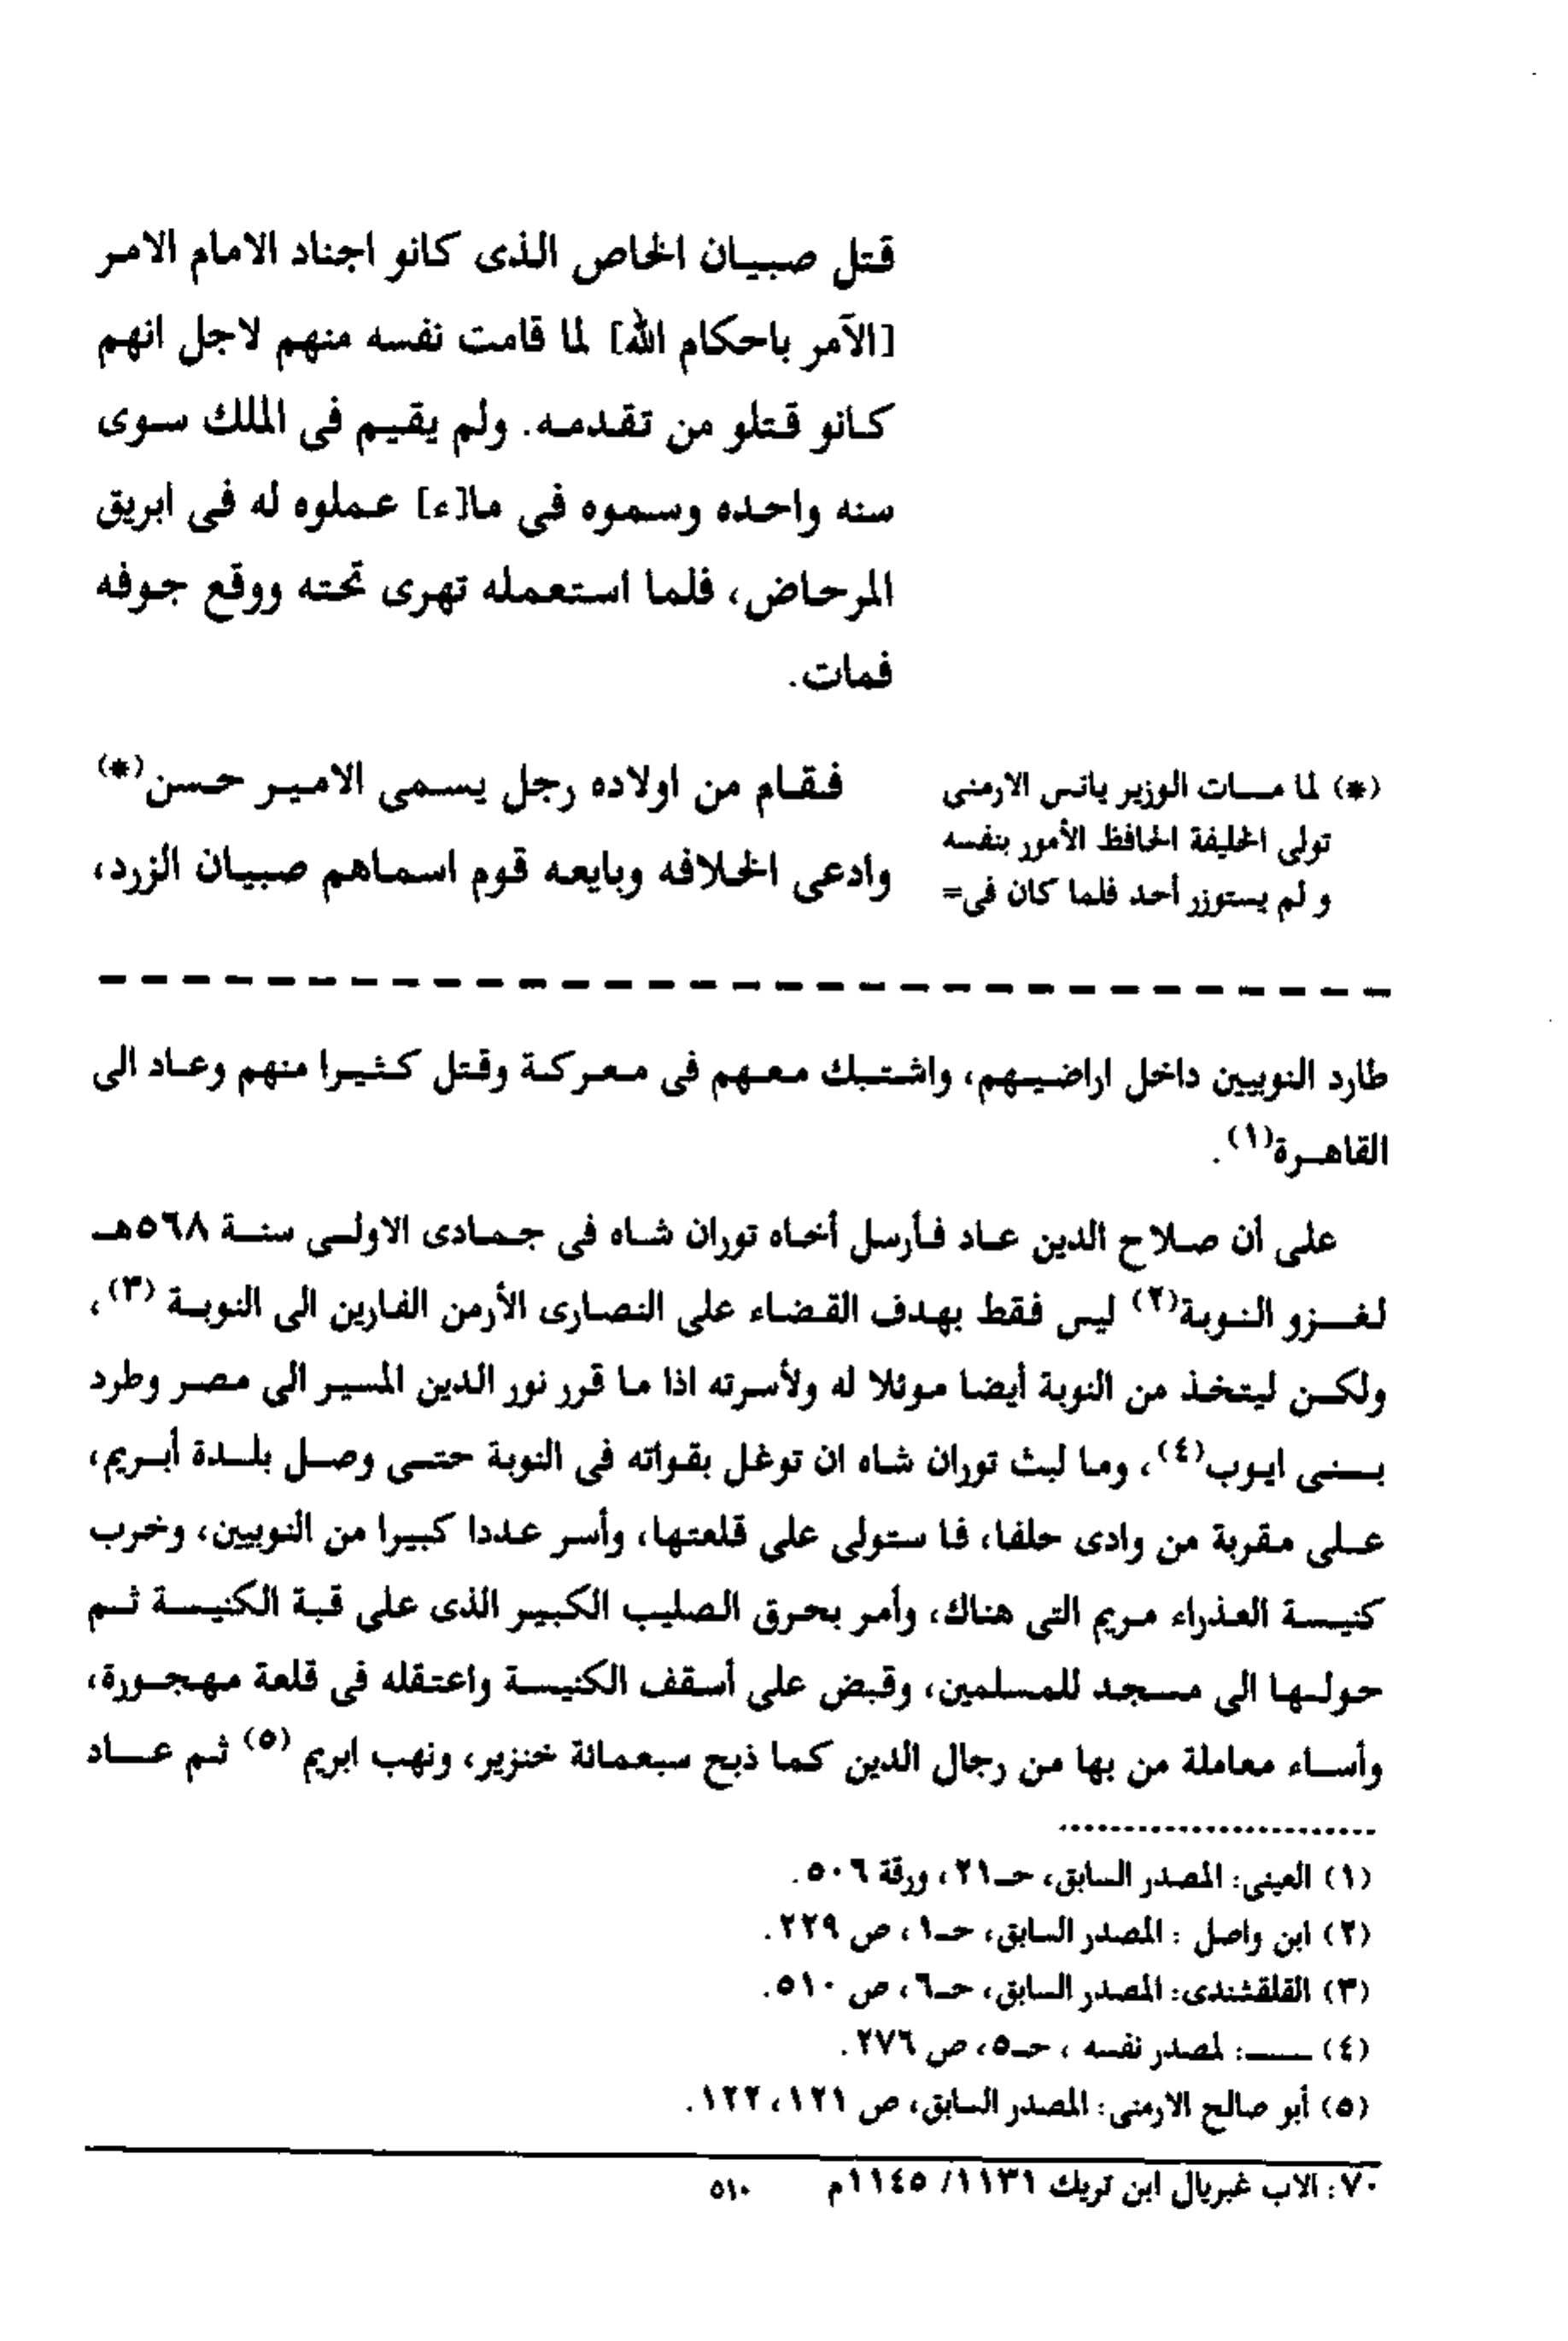 قتل صبيان الخاص الذى كانو اجناد الامام الامر
[الآمر باحكام الله] لما قامت نفسه منهم لاجل انهم
كانو قتلو من تقدمه. ولم يقيم فى الملك سوى
سنه واحده وسموه فى ما[ء] عملوه له فى ابريق
المرحاض، فلما استعمله تهرى تحته ووقع جوفه
فمات.
فقام من اولاده رجل يسمى الامير حسن(*)
وادعى الخلافه وبايعه قوم اسماهم صبيان الزرد،
(*) لما مات الوزير يانس الارمنى
تولى الخليفة الحافظ الأمور بنفسه
و لم يستوزر أحد فلما كان فى=
طارد النوبيين داخل اراضيهم، واشتبك معهم فى معركة وقتل كثيرا منهم وعاد الى
القاهرة(١).
على أن صلاح الدين عاد فأرسل أخاه توران شاه فى جمادى الاولى سنة ٥٦٨هـ
لغزو النوبة(٢) ليس فقط بهدف القضاء على النصارى الأرمن الفارين الى النوبة (٣)،
ولكن ليتخذ من النوبة أيضا موئلا له ولأسرته اذا ما قرر نور الدين المسير الى مصر وطرد
بنى ايوب(٤)، وما لبث توران شاه ان توغل بقواته فى النوبة حتى وصل بلدة أبريم،
على مقربة من وادى حلفا، فا ستولى على قلعتها، وأسر عددا كبيرا من النوبيين، وخرب
كنيسة العذراء مريم التى هناك، وأمر بحرق الصليب الكبير الذى على قبة الكنيسة ثم
حولها الى مسجد للمسلمين، وقبض على أسقف الكنيسة واعتقله فى قلعة مهجورة،
وأساء معاملة من بها من رجال الدين كما ذبح سبعمائة خنزير، ونهب ابريم (٥) ثم عاد
(١) العينى: المصدر السابق، حـ٢١، ورقة ٥٠٦.
(٢) ابن واصل : المصدر السابق، حـ١، ص ٢٢٩.
(٣) القلقشندى: المصدر السابق، حـ٦، ص ٥١٠.
(٤) ـــــ: لمصدر نفسه ، حـ٥، ص ٢٧٦.
(٥) أبو صالح الارمنى: المصدر السابق، ص ١٢١، ١٢٢.
٧٠: الاب غبريال ابن تريك ١١٣١/ ١١٤٥م ٥١٠